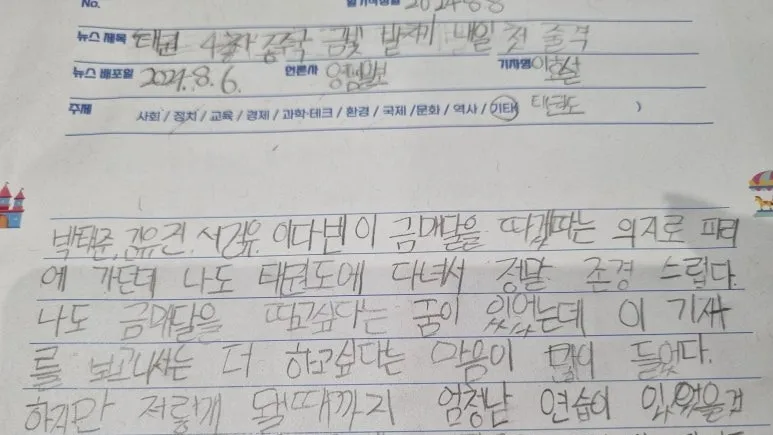 No. 일기작성일 2024.8.8
뉴스 제목 태권 4총사 종주국 금빛 발차기 내일 첫 출격
뉴스 배포일 2024.8.6. 언론사 영남일보 기자명
주제 사회 / 정치 / 교육 / 경제 / 과학·테크 / 환경 / 국제 / 문화 / 역사 / 기타 태권도 )
박태준, 김유진, 서건우, 이다빈이 금매달을 따겠다는 의지로 파리
에 가는데 나도 태권도에 다녀서 정말 존경 스럽다.
나도 금매달을 따고싶다는 꿈이 있었는데 이 기사
를 보고나서는 더 하고싶다는 마음이 많이 들었다.
하지만 저렇게 될때까지 엄청난 연습이 있었을거